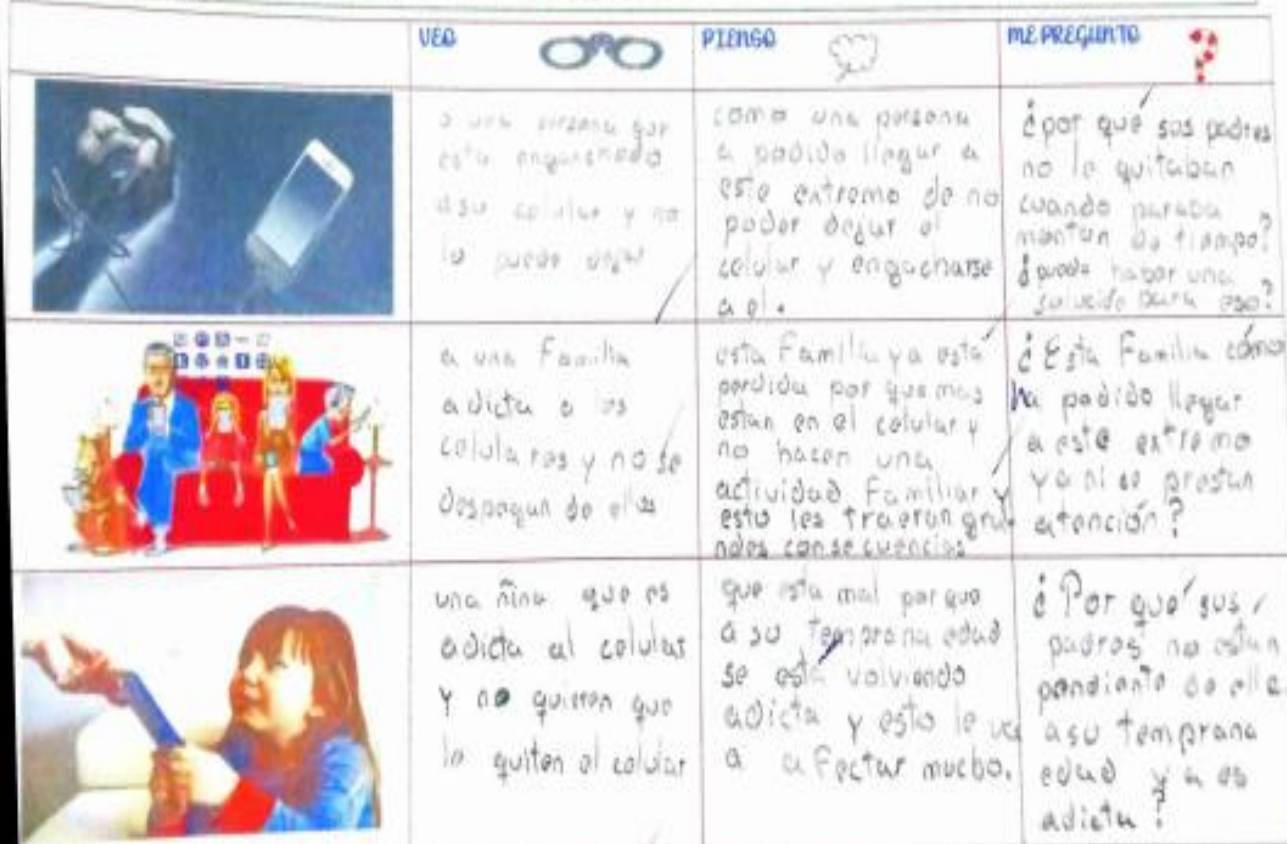 VEO
PIENSO
ME PREGUNTO
?
a una persona que
esta enganchado
a su celular y no
lo puede dejar
como una persona
a podido llegar a
este extremo de no
poder dejar el
celular y engacharse
a el.
¿por qué sus padres
no le quitaban
cuando paraba
monton de tiempo?
¿puede haber una
para eso?
a una Familia
adicta a los
celulares y no se
despegan de ellos
esta Familia ya está
perdida por que mas
estan en el celular y
no hacen una
actividad Familiar y
esto les traeran gra
ndes consecuencias
¿Esta Familia cómo
ha podido llegar
a este extremo
ya ni se prestan
atención?
una ñina que es
adicta al celular
y no quieren que
le quiten el celular
que esta mal porque
a su temprana edad
se está volviendo
adicta y esto le va
a afectar mucho.
¿Por qué sus
padres no estan
pendiente de ella
a su temprana
edad ya es
adicta?